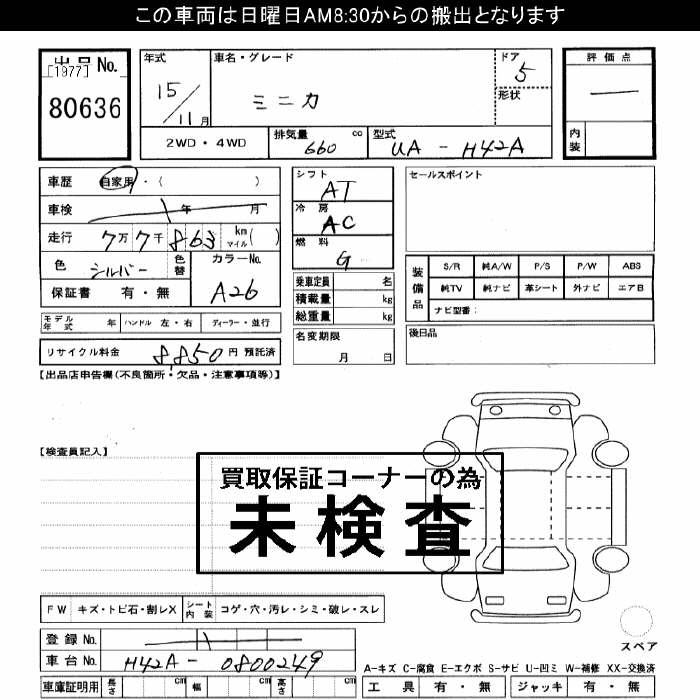 この車両は日曜日AM8:30からの搬出となります
出品No. [1977] 80636
年式 15/11月
車名・グレード ミニカ
ドア 5
形状
評価点 —
内装
2WD・4WD
排気量 660 cc
型式 UA - H42A
車歴 自家用・( )
車検 年 月
走行 7万7千863 km マイル( )
色 シルバー 色替
カラーNo. A26
保証書 有・無
モデル年式 年 ハンドル 左・右 ディーラー・並行
リサイクル料金 8,850円 預託済
シフト AT
冷房 AC
燃料 G
乗車定員 名
積載量 kg
総重量 kg
名変期限 月 日
セールスポイント
装備品 S/R 純A/W P/S P/W ABS
純TV 純ナビ 革シート 外ナビ エアB
ナビ型番:
後日品
【出品店申告欄(不良箇所・欠品・注意事項等)】
【検査員記入】
買取保証コーナーの為
未検査
FW キズ・トビ石・割レX シート内装 コゲ・穴・汚レ・シミ・破レ・スレ
登録No.
車台No. H42A - 0800249
車庫証明用 長さ cm 幅 cm 高さ cm
スペア
A-キズ C-腐食 E-エクボ S-サビ U-凹ミ W-補修 XX-交換済
工具 有・無 ジャッキ 有・無